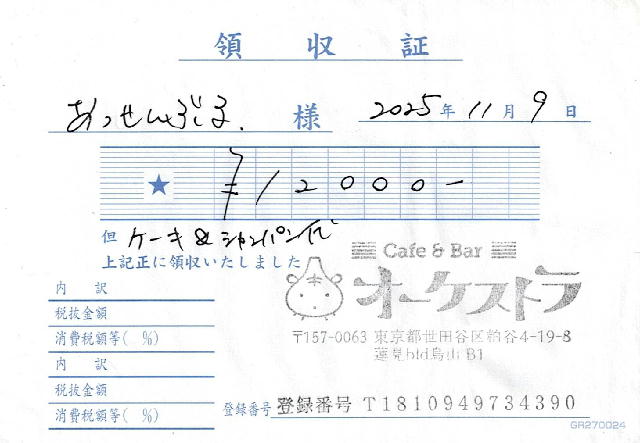 領収証
あっせんぶる. 様 2025年11月9日
★ ¥12000-
但 ケーキ&シャンパン代
上記正に領収いたしました
Cafe & Bar
オーケストラ
〒157-0063 東京都世田谷区粕谷4-19-8
蓮見bld烏山B1
内訳
税抜金額
消費税額等( %)
内訳
税抜金額
消費税額等( %)
登録番号 登録番号 T1810949734390
GR270024